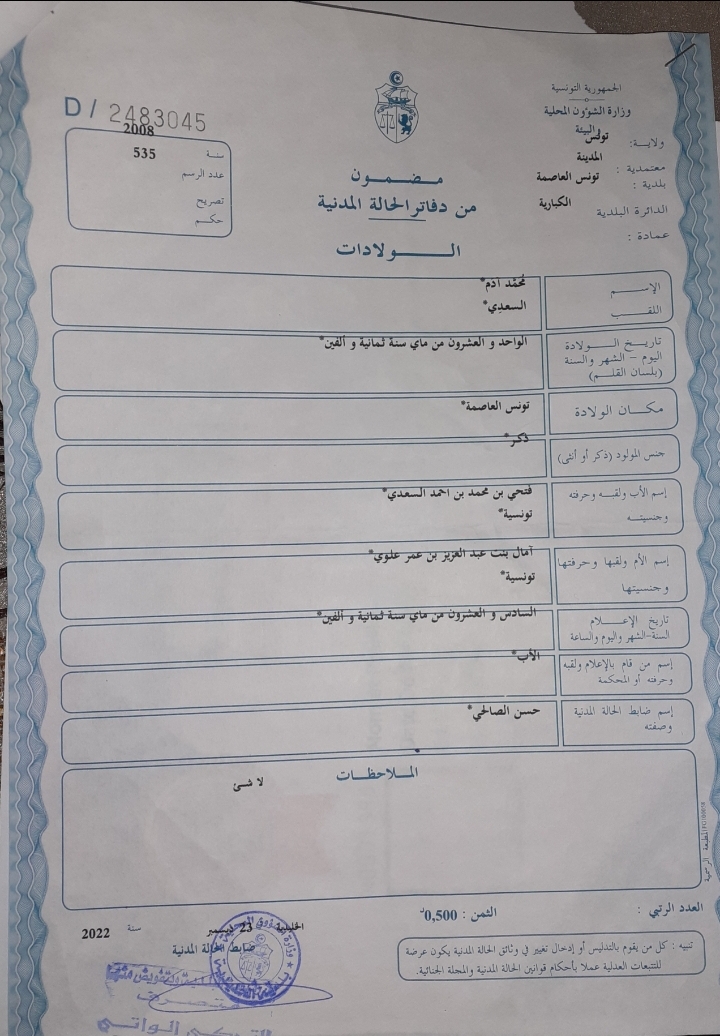 الجمهورية التونسية
وزارة الشؤون المحلية
والبيئة
ولاية: تونس
معتمدية : المدينة
بلدية : تونس العاصمة
الدائرة البلدية الكبارية
عمادة :
D / 2483045
سنة 2008
عدد الرسم 535
تصريح
حكم
مضمون
من دفاتر الحالة المدنية
الولادات
الإسم محمد آدم*
اللقب السعدي*
تاريخ الولادة الواحد و العشرون من ماي سنة ثمانية و ألفين*
اليوم - الشهر والسنة
(بلسان القلم)
مكان الولادة تونس العاصمة*
جنس المولود (ذكر أو أنثى) ذكر*
إسم الأب ولقبه وحرفته فتحي بن محمد بن احمد السعدي*
وجنسيته تونسية*
إسم الأم ولقبها وحرفتها آمال بنت عبد العزيز بن عمر علوي*
وجنسيتها تونسية*
تاريخ الإعلام السادس و العشرون من ماي سنة ثمانية و ألفين*
السنة-الشهر واليوم والساعة
إسم من قام بالإعلام ولقبه الأب*
وحرفته أو المحكمة
إسم ضابط الحالة المدنية حسن الصالحي*
وصفته
الملاحظات
لا شئ
المطبعة الرسمية
العدد الرتبي :
الثمن : 0,500د
23 ديسمبر سنة 2022
ضابط الحالة المدنية
تنبيه : كل من يقوم بالتدليس أو إدخال تغيير في وثائق الحالة المدنية يكون عرضة
للتتبعات العدلية عملا بأحكام قوانين الحالة المدنية والمجلة الجنائية.